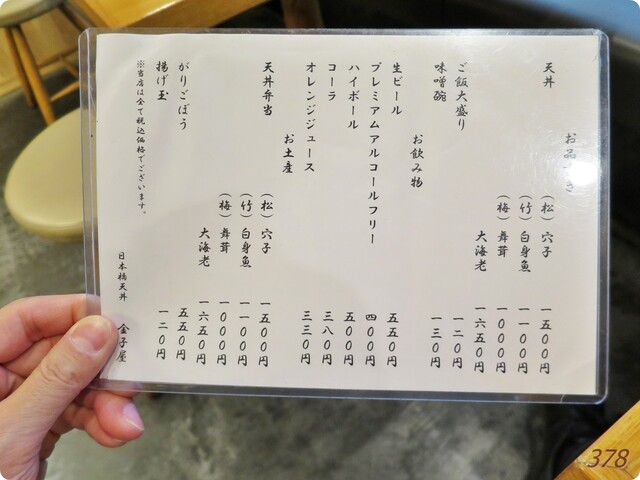 お品書き
天丼 （松）穴子 一五〇〇円
（竹）白身魚 一一〇〇円
（梅）舞茸 一〇〇〇円
大海老 一六五〇円
ご飯大盛り 一二〇円
味噌碗 一三〇円
お飲み物
生ビール 五五〇円
プレミアムアルコールフリー 四〇〇円
ハイボール 五〇〇円
コーラ 三八〇円
オレンジジュース 三三〇円
お土産
天丼弁当 （松）穴子 一五〇〇円
（竹）白身魚 一一〇〇円
（梅）舞茸 一〇〇〇円
大海老 一六五〇円
がりごぼう 五五〇円
揚げ玉 一二〇円
※当店は全て税込価格でございます。
日本橋天丼 金子屋
378